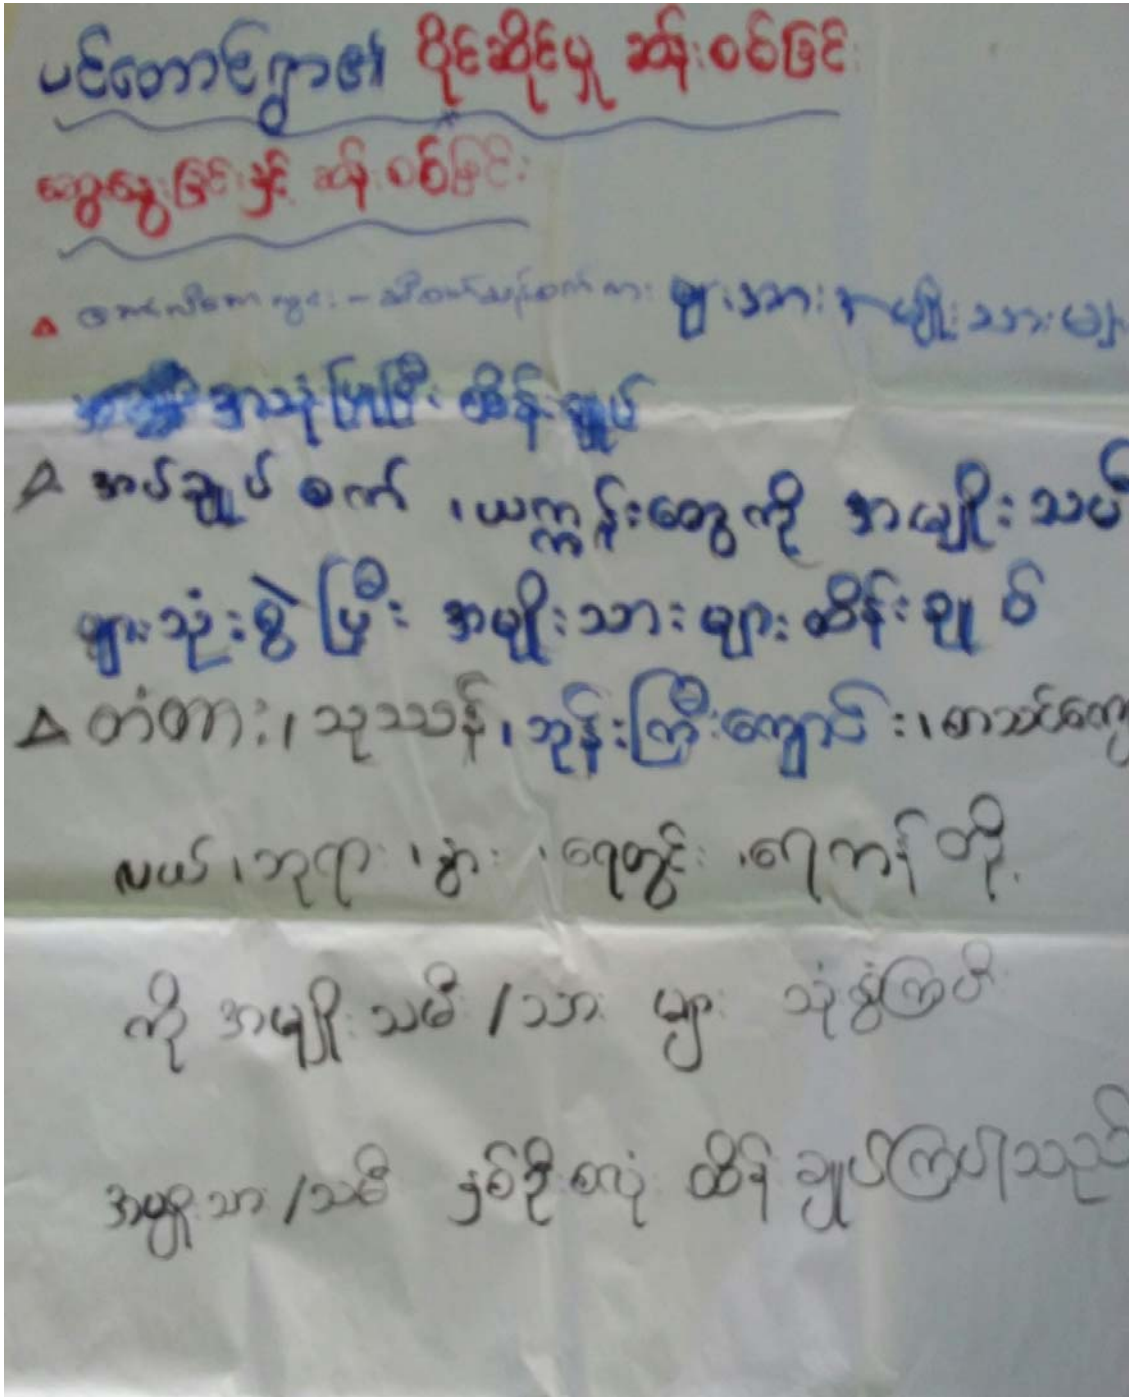 ပင်တောင်ရွာ၏ ပိုင်ဆိုင်မှု ဆန်းစစ်ခြင်း
ဆွေးနွေးခြင်းနှင့် ဆန်းစစ်ခြင်း
များအား အမျိုးသားများ
အသုံးပြုပြီး ထိန်းချုပ်
အပ်ချုပ်စက် ၊ယက္ကန်းတွေကို အမျိုးသမီး
များသုံးစွဲပြီး အမျိုးသားများထိန်းချုပ်
တံတား၊ သုဿန်၊ဘုန်းကြီးကျောင်း၊စာသင်ကျော
လယ်၊ဘုရား၊နွား၊ရေတွင်း၊ရေကန်တို့
ကို အမျိုးသမီး/သား များ သုံးစွဲကြပြီး
အမျိုးသား/သမီး နှစ်ဦးစလုံး ထိန်းချုပ်ကြပါသည်